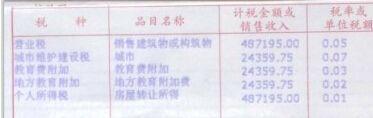 税 种 品目名称 计税金额或销售收入 税率或单位税额
营业税 销售建筑物或构筑物 487195.00 0.05
城市维护建设税 城市 24359.75 0.07
教育费附加 教育费附加 24359.75 0.03
地方教育附加 地方教育附加费 24359.75 0.02
个人所得税 房屋转让所得 487195.00 0.01